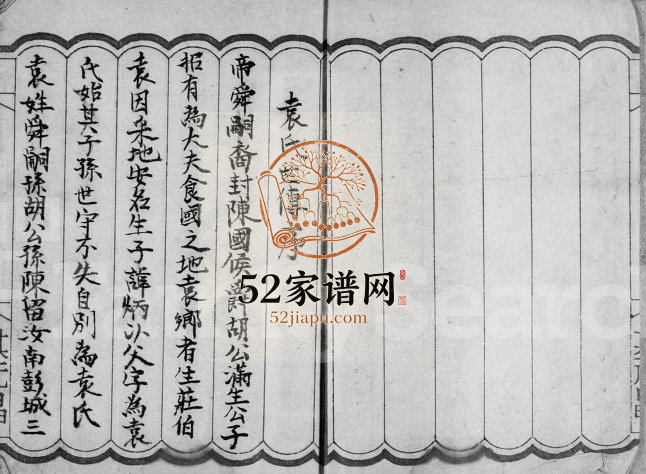 袁氏世傳序
帝舜嗣裔封陳國侯爵胡公滿生公子
招有為大夫食國之地袁鄉者生莊伯
袁因采地安名生子諱炳以父字為袁
氏始其子孫世守不失自別為袁氏
袁姓舜嗣孫胡公孫陳留汝南彭城三
52家谱网
52jiapu.com